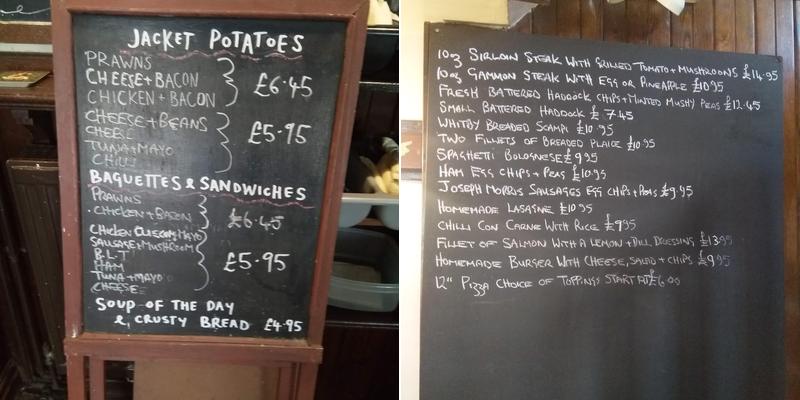 JACKET POTATOES
PRAWNS
CHEESE + BACON
CHICKEN + BACON
£6.45
CHEESE + BEANS
CHEESE
TUNA + MAYO
CHILLI
£5.95
BAGUETTES & SANDWICHES
PRAWNS
CHICKEN + BACON
£6.45
CHICKEN MAYO
SAUSAGE + MUSHROOM
B.L.T
HAM
TUNA + MAYO
CHEESE
£5.95
SOUP OF THE DAY
& CRUSTY BREAD £4.95
10oz SIRLOIN STEAK WITH GRILLED TOMATO + MUSHROOMS £14.95
10oz GAMMON STEAK WITH EGG OR PINEAPLE £10.95
FRESH BATTERED HADDOCK CHIPS + MINTED MUSHY PEAS £12.45
SMALL BATTERED HADDOCK £7.45
WHITBY BREADED SCAMPI £10.95
TWO FILLETS OF BREADED PLAICE £10.95
SPAGHETTI BOLOGNESE £9.95
HAM EGG CHIPS + PEAS £10.95
JOSEPH MORRIS SAUSAGES EGG CHIPS + PEAS £9.95
HOMEMADE LASAGNE £10.95
CHILLI CON CARNE WITH RICE £9.95
FILLET OF SALMON WITH A LEMON + DILL DRESSING £13.95
HOMEMADE BURGER WITH CHEESE, SALAD + CHIPS £9.95
12" PIZZA CHOICE OF TOPPINGS START AT £6.00